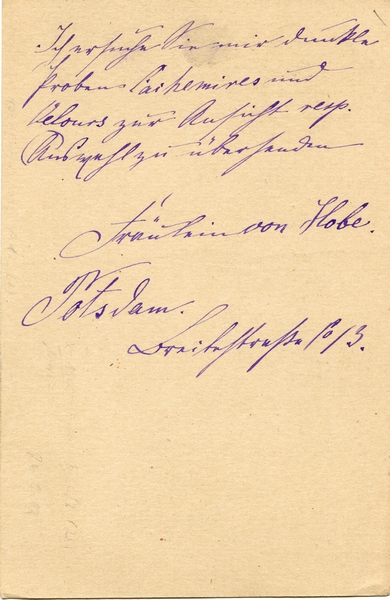 Ich ersuche Sie mir dunkle
Proben Cachemires und
Velours zur Ansicht resp.
Auswahl zu übersenden
Fräulein von Hobe.
Potsdam.
Breitestraße 13.